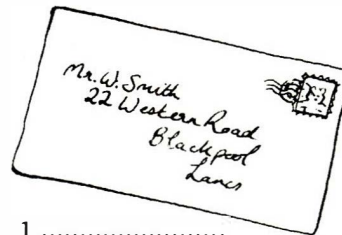 Mr. W. Smith
22 Western Road
Blackpool
Lancs
1 ........................